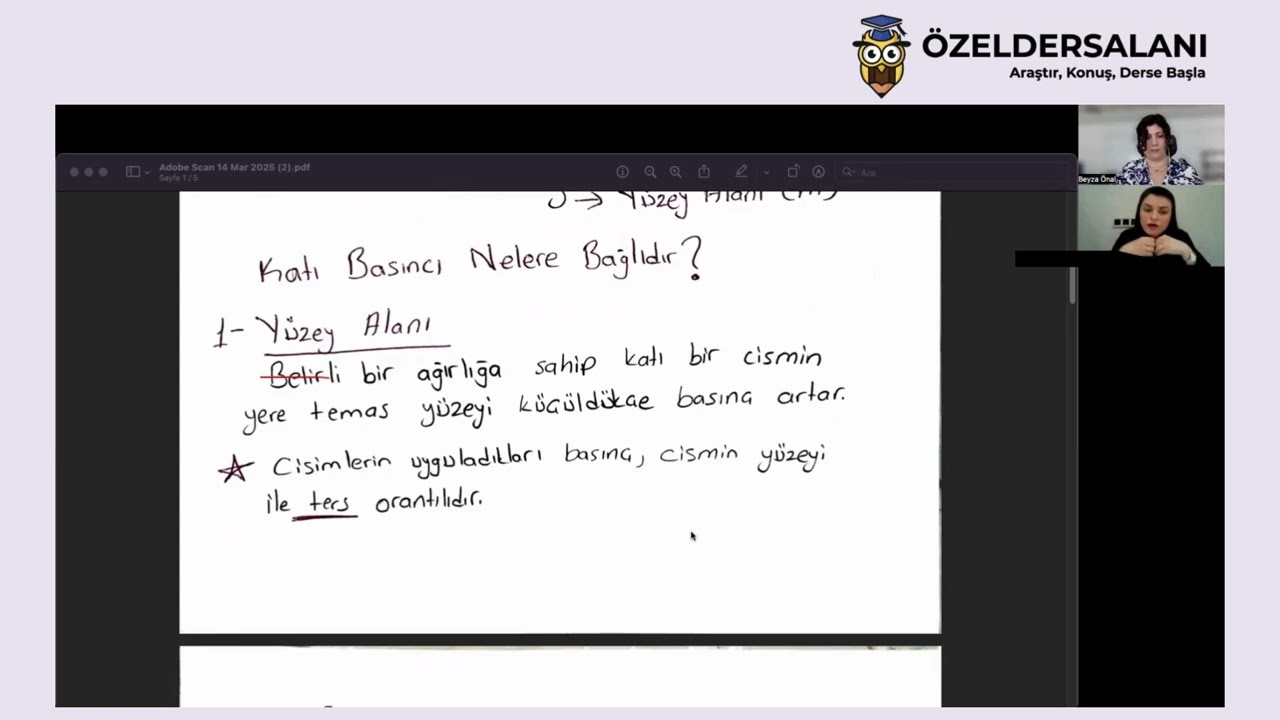 ÖZELDERSALANI
Araştır, Konuş, Derse Başla
Adobe Scan 14 Mar 2025 (2).pdf
Sayfa 1 / 5
Ara
Beyza Önal
→ Yüzey Alanı (m²)
Katı Basıncı Nelere Bağlıdır?
1- Yüzey Alanı
Belirli bir ağırlığa sahip katı bir cismin
yere temas yüzeyi küçüldükçe basınç artar.
☆ Cisimlerin uyguladıkları basınç, cismin yüzeyi
ile ters orantılıdır.